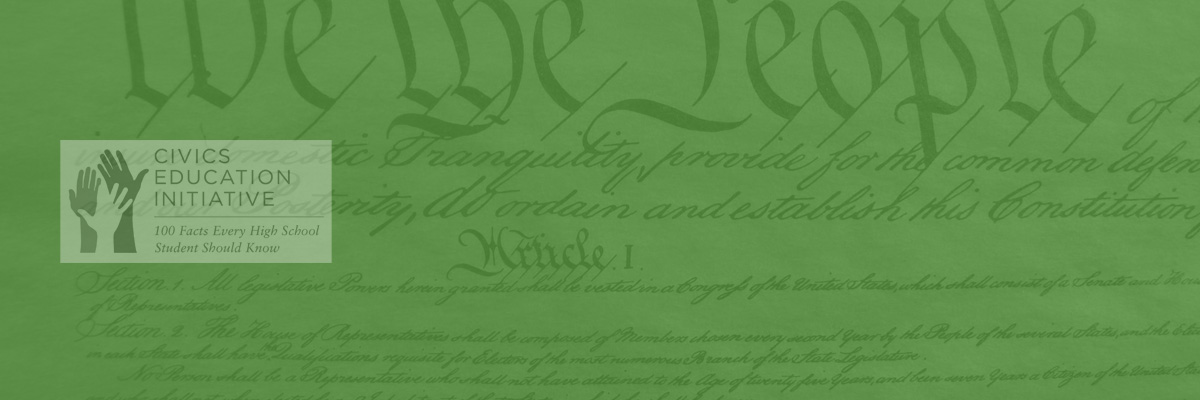 We the People
of
insure domestic Tranquility, provide for the common defen
and our Posterity, do ordain and establish this Constitution
CIVICS
EDUCATION
INITIATIVE
100 Facts Every High School
Student Should Know
Article. I.
Section. 1. All legislative Powers herein granted shall be vested in a Congress of the United States, which shall consist of a Senate and Hou
of Representatives.
Section. 2. The House of Representatives shall be composed of Members chosen every second Year by the People of the several States, and the Elec
in each State shall have the Qualifications requisite for Electors of the most numerous Branch of the State Legislature.
No Person shall be a Representative who shall not have attained to the Age of twenty five Years, and been seven Years a Citizen of the United States